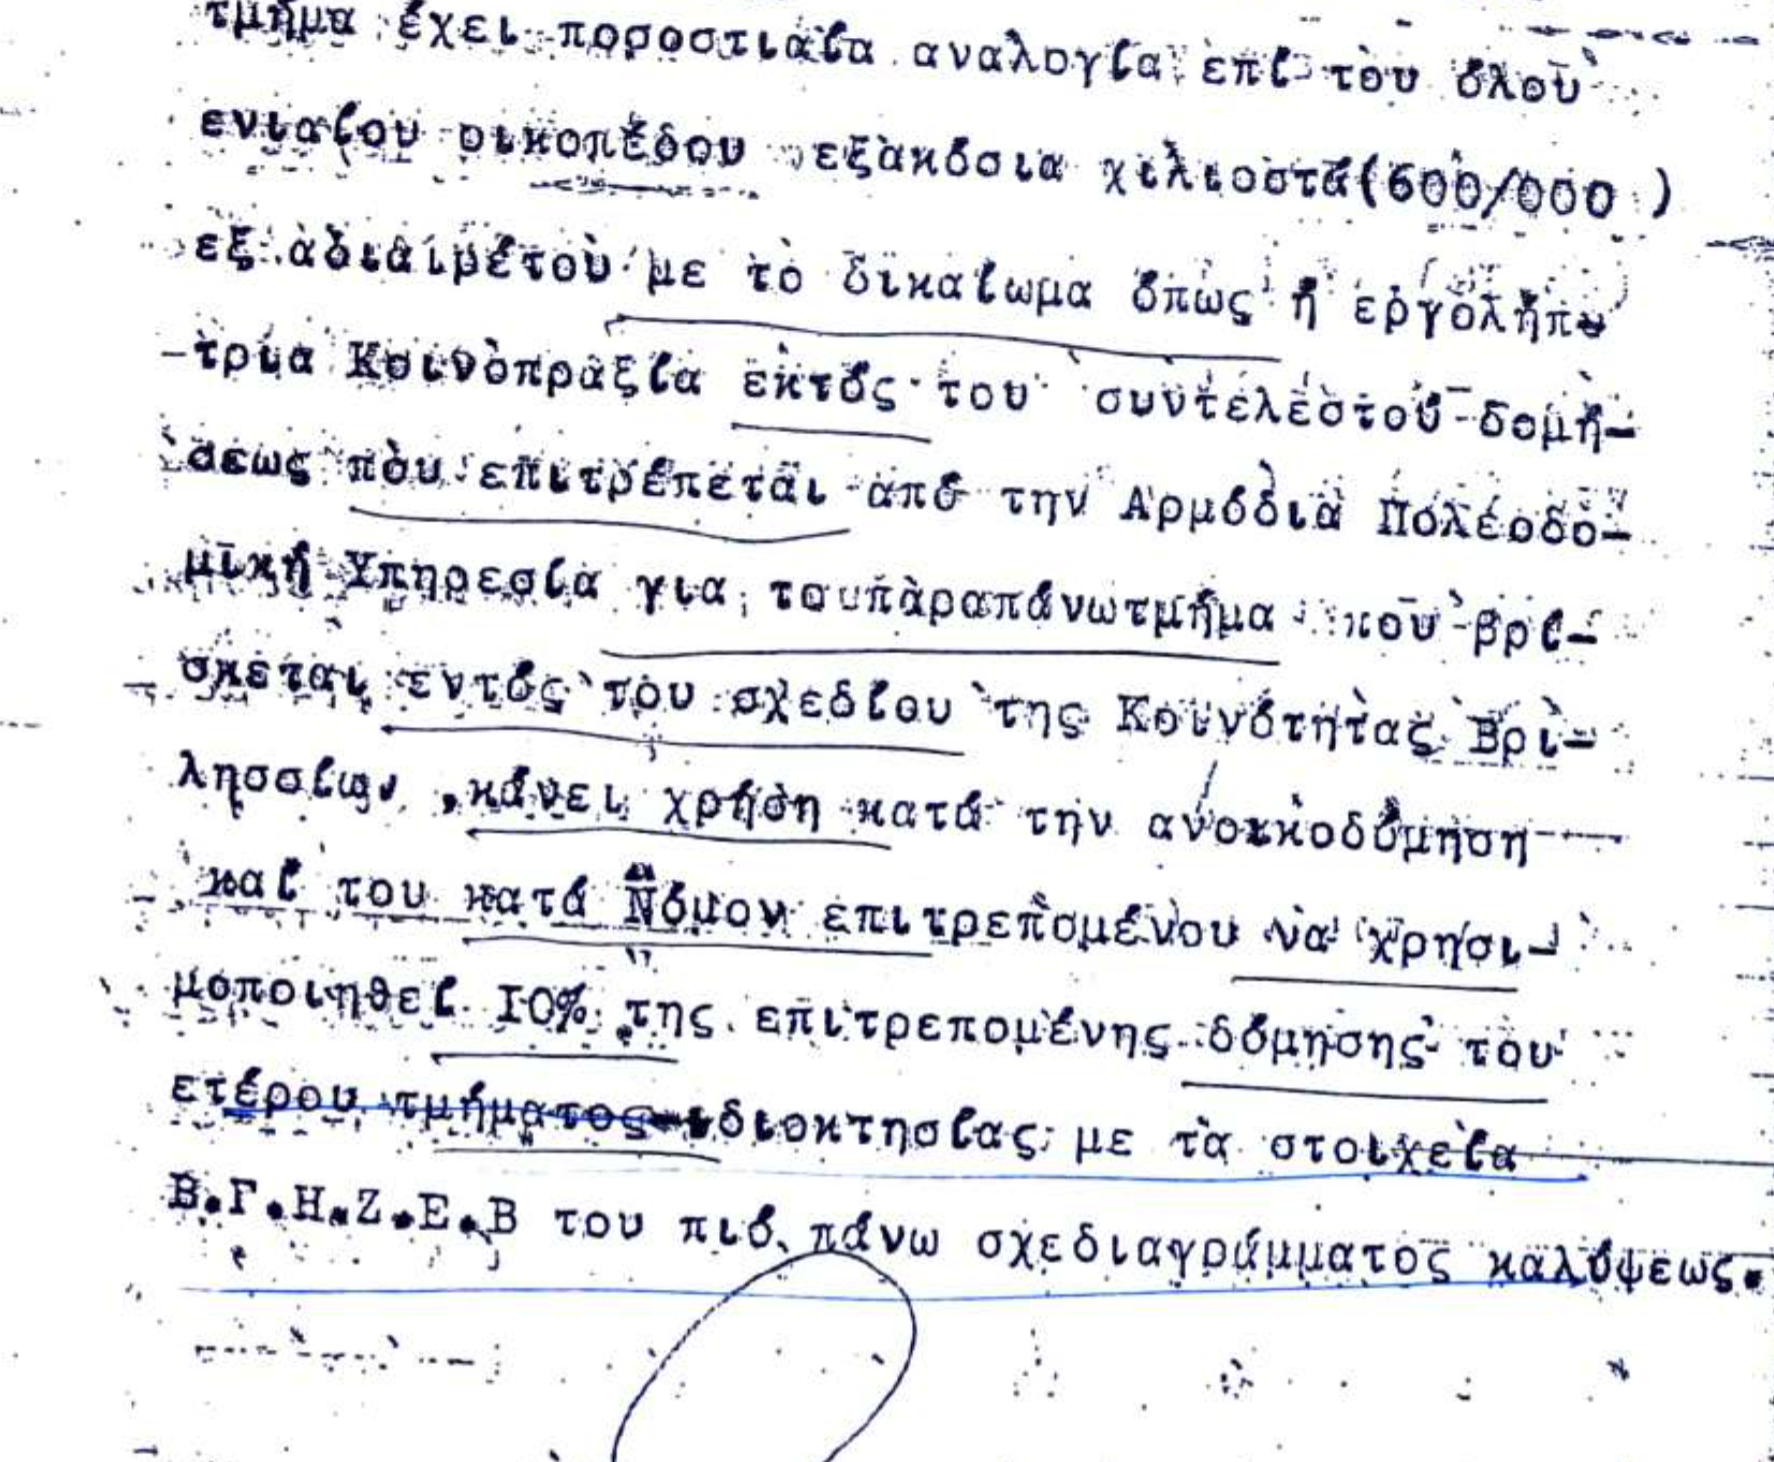 τμήμα έχει ποσοστιαία αναλογία επί του όλου
ενιαίου οικοπέδου εξακόσια χιλιοστά(600/000 )
εξ αδιαιρέτου με το δικαίωμα όπως ή εργολήπ
-τρια Κοινοπραξία εκτός του συντελεστού δομή-
σεως που επιτρέπεται από την Αρμόδια Πολεοδο-
μική Υπηρεσία για τουπαραπάνωτμήμα που βρί-
σκεται εντός του σχεδίου της Κοινότητας Βρι-
λησσίων ,κάνει χρήση κατά την ανοικοδόμηση
καί του κατά Νόμον επιτρεπομένου να χρησι-
μοποιηθεί Ι0% της επιτρεπομένης δόμησης του
ετέρου τμήματος ιδιοκτησίας με τα στοιχεία
Β.Γ.Η.Ζ.Ε.Β του πιό πάνω σχεδιαγράμματος καλύψεως.